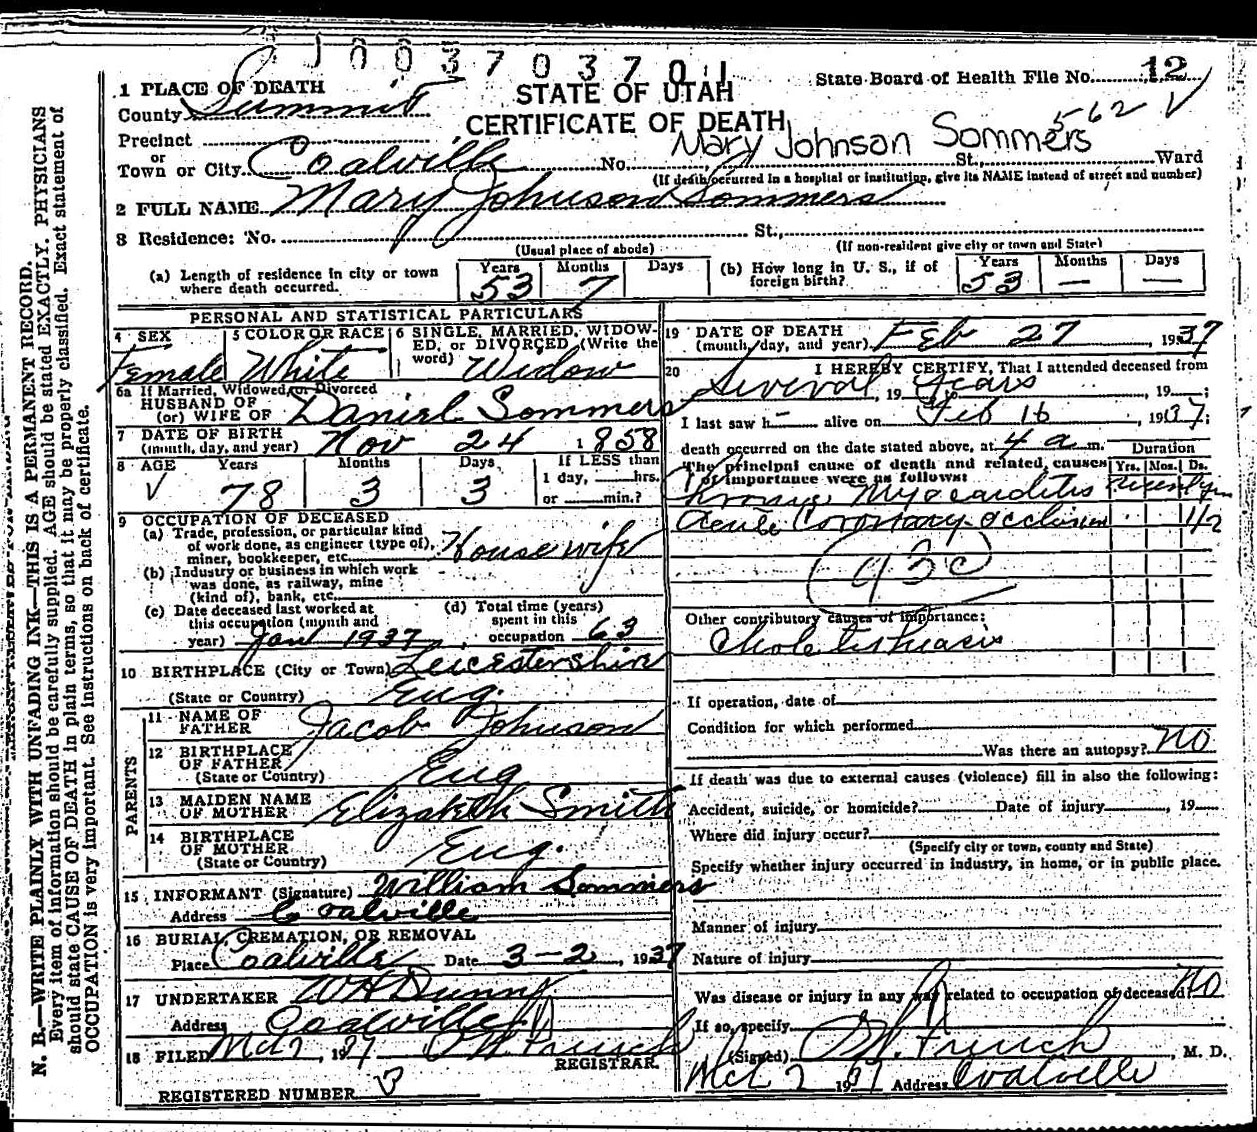 1003703701
State Board of Health File No. 12
1 PLACE OF DEATH
STATE OF UTAH
County Summit
CERTIFICATE OF DEATH
562
Precinct
Mary Johnson Sommers
or
Town or City Coalville No. St., Ward
(If death occurred in a hospital or institution, give its NAME instead of street and number)
2 FULL NAME Mary Johnson Sommers
3 Residence: No. St.,
(Usual place of abode) (If non-resident give city or town and State)
(a) Length of residence in city or town where death occurred. Years 53 Months 7 Days
(b) How long in U. S., if of foreign birth? Years 53 Months — Days —
PERSONAL AND STATISTICAL PARTICULARS
4 SEX Female
5 COLOR OR RACE White
6 SINGLE, MARRIED, WIDOWED, or DIVORCED (Write the word) Widow
6a If Married, Widowed, or Divorced
HUSBAND OF
(or) WIFE OF Daniel Sommers
7 DATE OF BIRTH
(month, day, and year) Nov 24 1858
8 AGE Years 78 Months 3 Days 3 If LESS than 1 day, hrs. or min.?
9 OCCUPATION OF DECEASED
(a) Trade, profession, or particular kind
of work done, as engineer (type of),
miner, bookkeeper, etc. Housewife
(b) Industry or business in which work
was done, as railway, mine
(kind of), bank, etc.
(c) Date deceased last worked at
this occupation (month and
year) Jan 1937
(d) Total time (years)
spent in this
occupation 63
10 BIRTHPLACE (City or Town) Leicestershire
(State or Country) Eng.
PARENTS
11 NAME OF
FATHER Jacob Johnson
12 BIRTHPLACE
OF FATHER
(State or Country) Eng
13 MAIDEN NAME
OF MOTHER Elizabeth Smith
14 BIRTHPLACE
OF MOTHER
(State or Country) Eng.
15 INFORMANT (Signature) William Sommers
Address Coalville
16 BURIAL, CREMATION, OR REMOVAL
Place Coalville Date 3-2, 1937
17 UNDERTAKER W H Dunn
Address Coalville
18 FILED Mch 2, 1937
REGISTRAR.
REGISTERED NUMBER 3
19 DATE OF DEATH
(month, day, and year) Feb 27, 1937
20 I HEREBY CERTIFY, That I attended deceased from
Several, 19 Years, 19 ;
I last saw h alive on Feb 16 1937;
death occurred on the date stated above, at 4 a m.
The principal cause of death and related causes
of importance were as follows:
Duration
Yrs. Mos. Ds.
Myocarditis
Acute Coronary occlusion 1/2
93c
Other contributory causes of importance:
If operation, date of
Condition for which performed
Was there an autopsy? No
If death was due to external causes (violence) fill in also the following:
Accident, suicide, or homicide? Date of injury , 19
Where did injury occur?
(Specify city or town, county and State)
Specify whether injury occurred in industry, in home, or in public place.
Manner of injury
Nature of injury
Was disease or injury in any way related to occupation of deceased? No
If so, specify
(Signed) French, M. D.
Mch 2 1937 Address Coalville
N. B.—WRITE PLAINLY WITH UNFADING INK—THIS IS A PERMANENT RECORD.
Every item of information should be carefully supplied. AGE should be stated EXACTLY. PHYSICIANS
should state CAUSE OF DEATH in plain terms, so that it may be properly classified. Exact statement of
OCCUPATION is very important. See instructions on back of certificate.